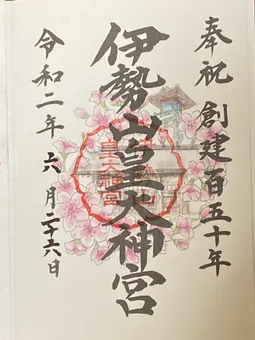 奉祝 創建百五十年
伊勢山皇大神宮
令和二年 六月二十六日